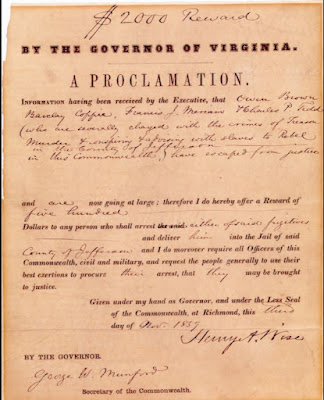 $2000 Reward
BY THE GOVERNOR OF VIRGINIA.
A PROCLAMATION.
INFORMATION having been received by the Executive, that Owen Brown
Barclay Coppic, Francis J. Merriam & Charles P. Tidd
(who are severally charged with the crimes of Treason
Murder & conspiring & advising with slaves to Rebel
in the County of Jefferson
in this Commonwealth,) have escaped from justice
and are now going at large; therefore I do hereby offer a Reward of
five hundred
Dollars to any person who shall arrest the said either of said fugitives
and deliver him into the Jail of said
County of Jefferson and I do moreover require all Officers of this
Commonwealth, civil and military, and request the people generally to use their
best exertions to procure their arrest, that they may be brought
to justice.
Given under my hand as Governor, and under the Less Seal
of the Commonwealth, at Richmond, this third
day of Nov. 1859
Henry A. Wise
BY THE GOVERNOR.
George W. Munford
Secretary of the Commonwealth.